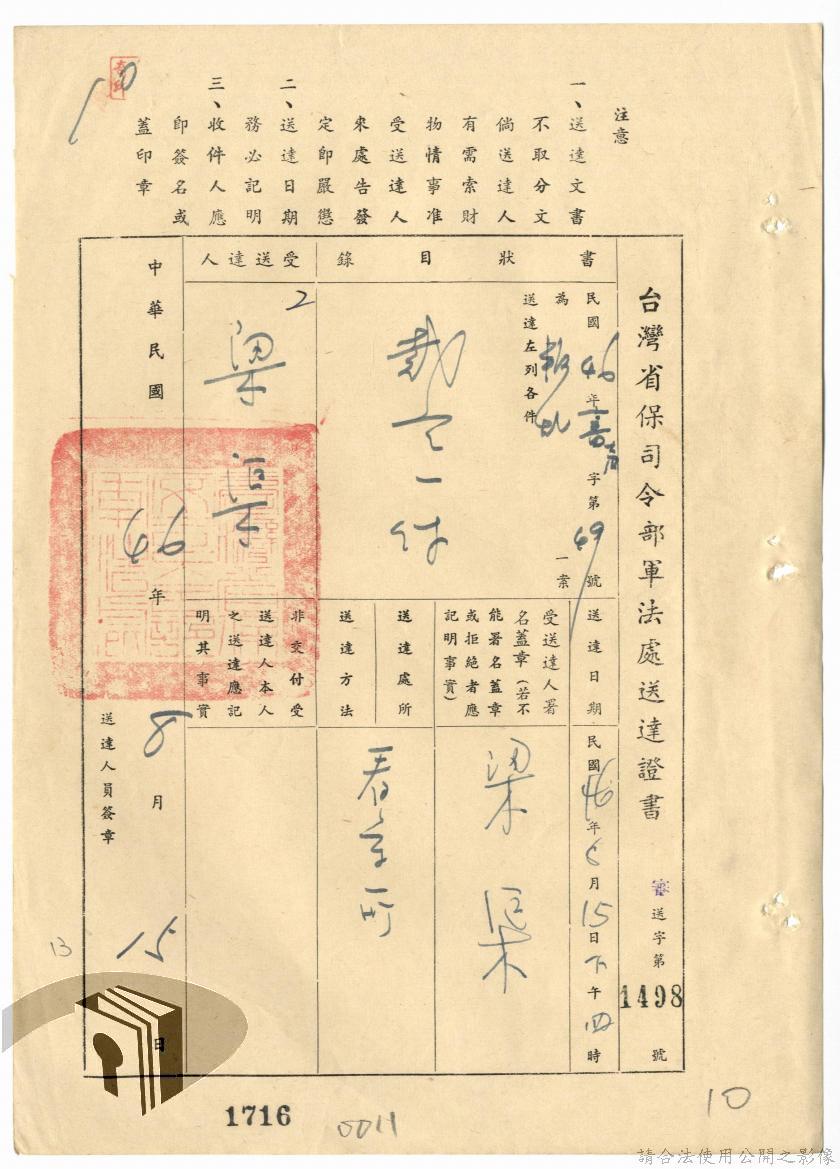 注意
一、送達文書
不取分文
倘送達人
有需索財
物情事准
受送達人
來處告發
定即嚴懲
二、送達日期
務必記明
三、收件人應
即簽名或
蓋印章
10
台灣省保司令部軍法處送達證書
審送字第1498號
書狀目錄
民國46年 字第49號
為叛亂一案
送達左列各件
裁定一件
受送達人
2
梁渠
送達日期
民國46年8月15日下午四時
受送達人署
名蓋章(若不
能署名蓋章
或拒絕者應
記明事實)
梁渠
送達處所
看守所
送達方法
非交付受
送達人本人
之送達應記
明其事實
中華民國46年8月15日
送達人員簽章
13
1716
0011
10
請合法使用公開之影像